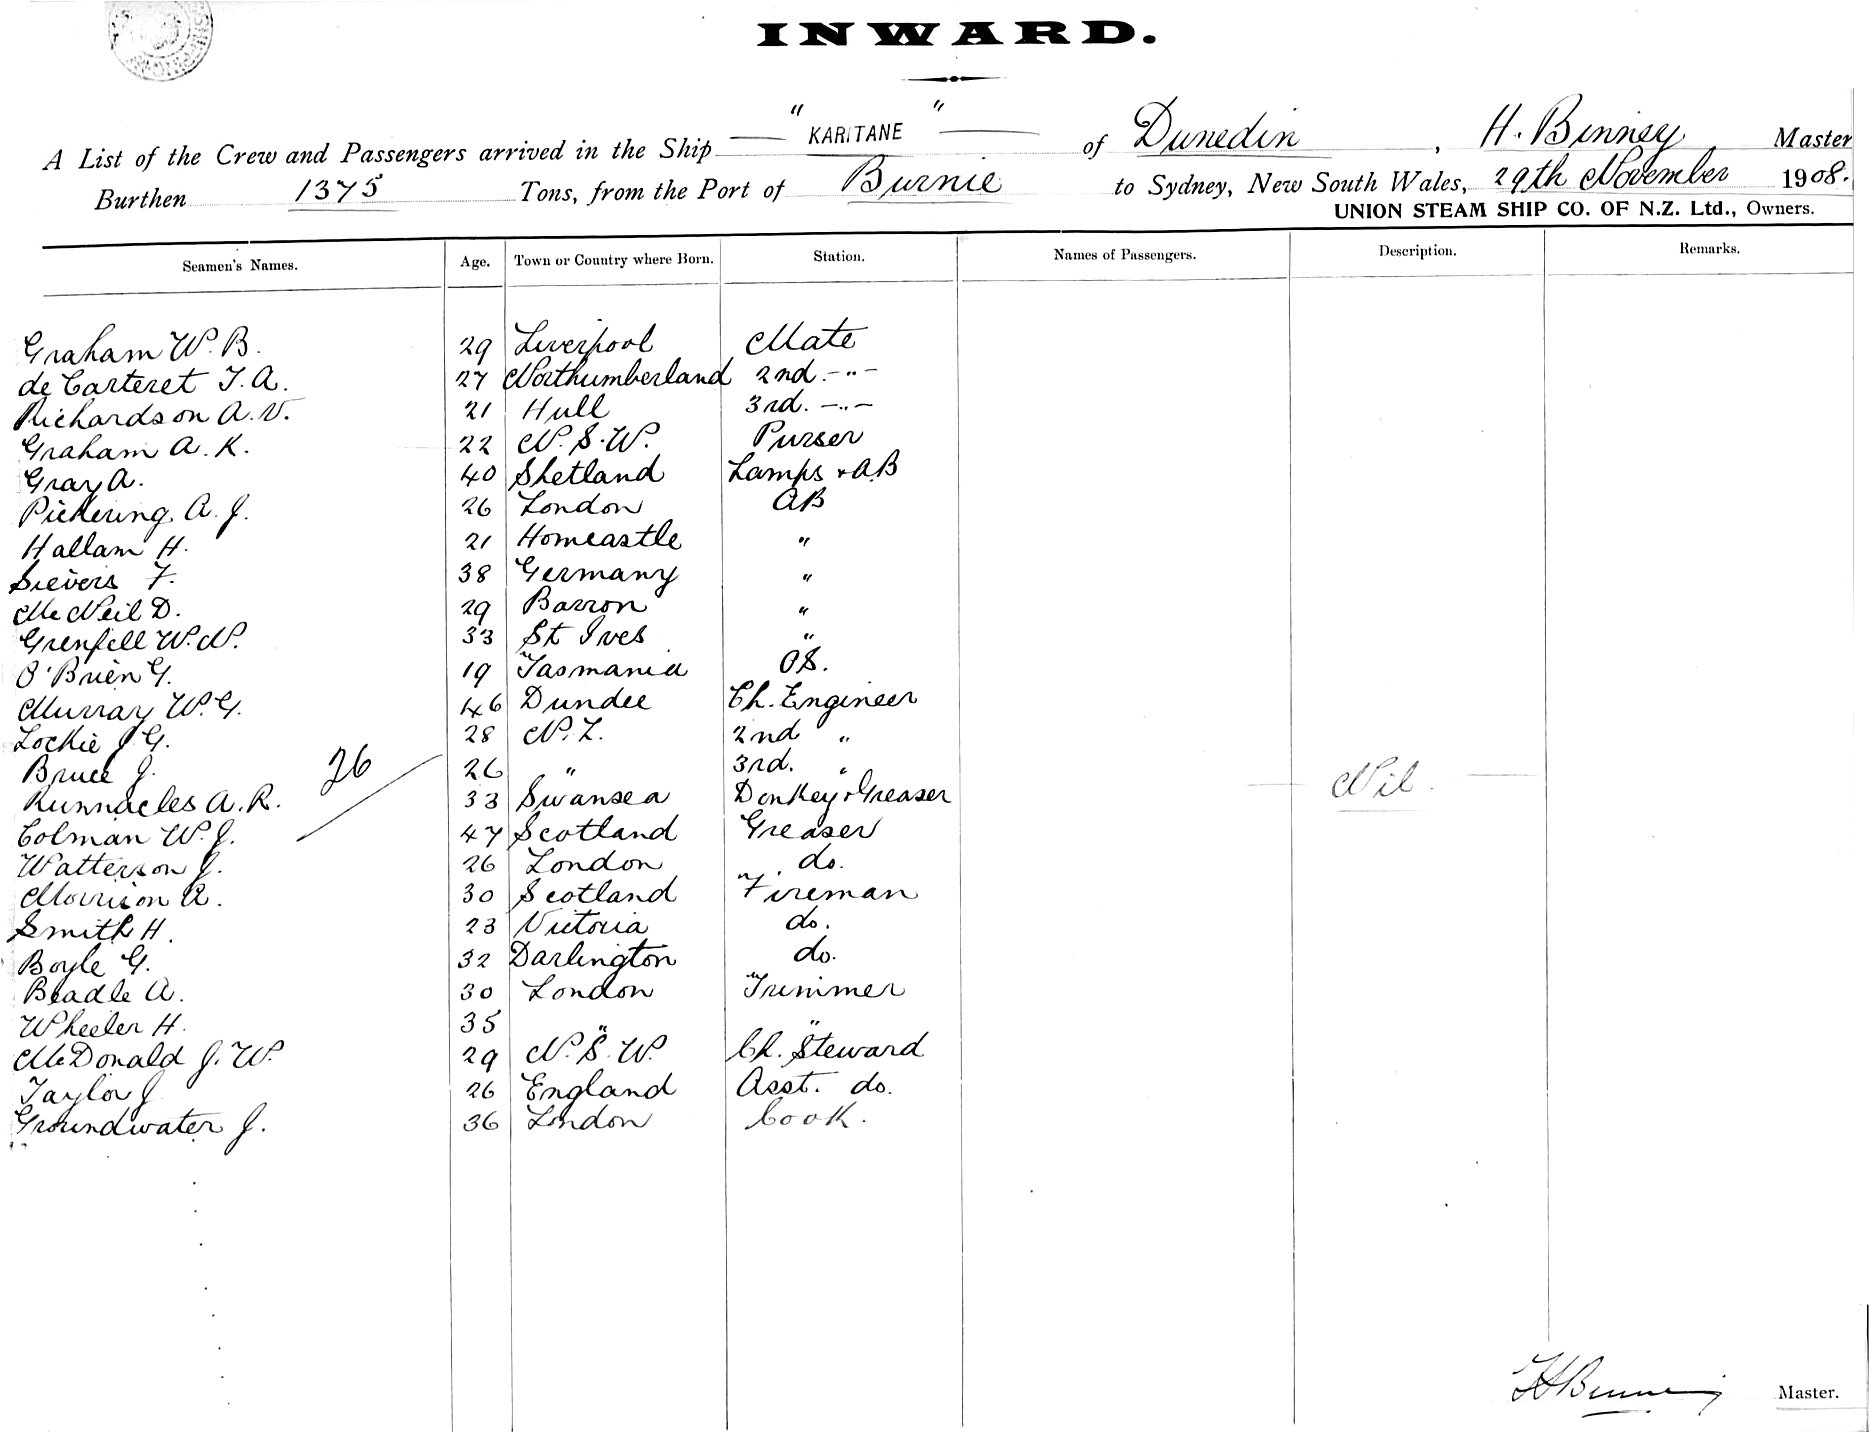 INWARD.
A List of the Crew and Passengers arrived in the Ship " KARITANE " of Dunedin, H. Binney Master
Burthen 1375 Tons, from the Port of Burnie to Sydney, New South Wales, 29th November 1908.
UNION STEAM SHIP CO. OF N.Z. Ltd., Owners.
Seamen's Names. Age. Town or Country where Born. Station. Names of Passengers. Description. Remarks.
Graham W. B. 29 Liverpool Mate
de Carteret T. A. 27 Northumberland 2nd. -"-
Richardson A. V. 21 Hull 3rd. -"-
Graham A. K. 22 N. S. W. Purser
Gray A. 40 Shetland Lamps + AB
Pickering A. J. 26 London AB
Hallam H. 21 Horncastle "
Sievers F. 38 Germany "
McNeil D. 29 Barron "
Grenfell W. N. 33 St Ives "
O'Brien G. 19 Tasmania OS.
Murray W. G. 46 Dundee Ch. Engineer
Lockie J G. 28 N. Z. 2nd "
Bruce J. 26 26 " 3rd. "
Runnacles A. R. 33 Swansea Donkey + Greaser Nil.
Colman W. J. 47 Scotland Greaser
Watterson J. 26 London do.
Morrison A. 30 Scotland Fireman
Smith H. 23 Victoria do.
Boyle G. 32 Darlington do.
Beadle A. 30 London Trimmer
Wheeler H. 35 " "
McDonald J. W. 29 N. S. W. Ch. Steward
Taylor J 26 England Asst. do.
Groundwater J. 36 London Cook.
H Binney Master.